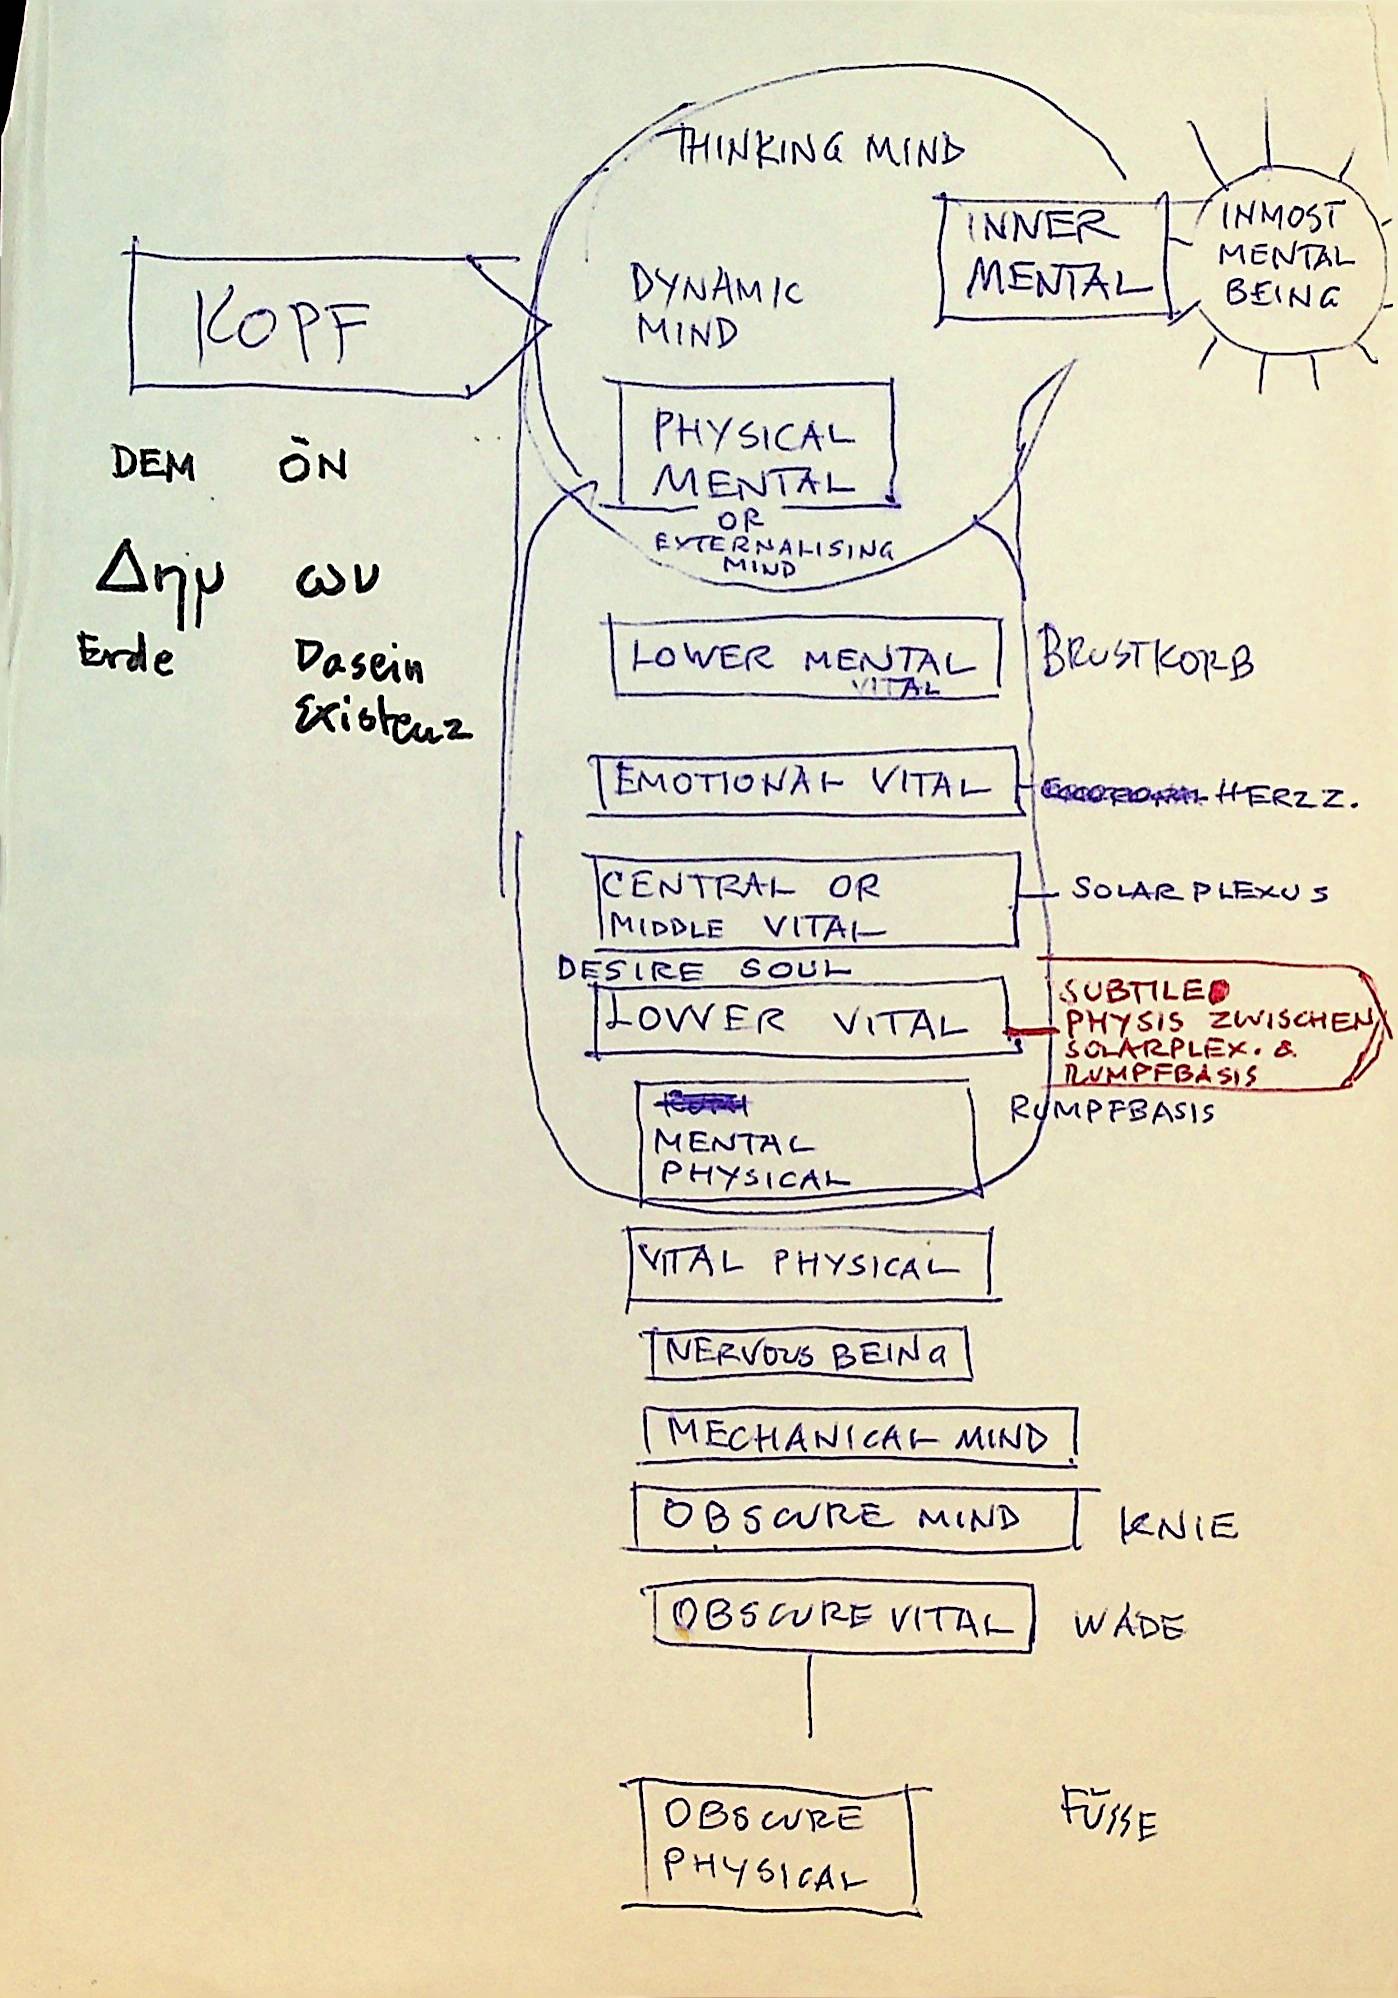 THINKING MIND
INNER
MENTAL
INMOST
MENTAL
BEING
KOPF
DYNAMIC
MIND
PHYSICAL
MENTAL
OR
EXTERNALISING
MIND
DEM ÖN
Δημ ων
Erde Dasein
Existenz
LOWER MENTAL
VITAL
BRUSTKORB
EMOTIONAL VITAL
HERZZ.
CENTRAL OR
MIDDLE VITAL
SOLARPLEXUS
DESIRE SOUL
LOWER VITAL
SUBTILE
PHYSIS ZWISCHEN
SOLARPLEX. &
RUMPFBASIS
RUMPFBASIS
MENTAL
PHYSICAL
VITAL PHYSICAL
NERVOUS BEING
MECHANICAL MIND
OBSCURE MIND
KNIE
OBSCURE VITAL
WADE
OBSCURE
PHYSICAL
FÜSSE